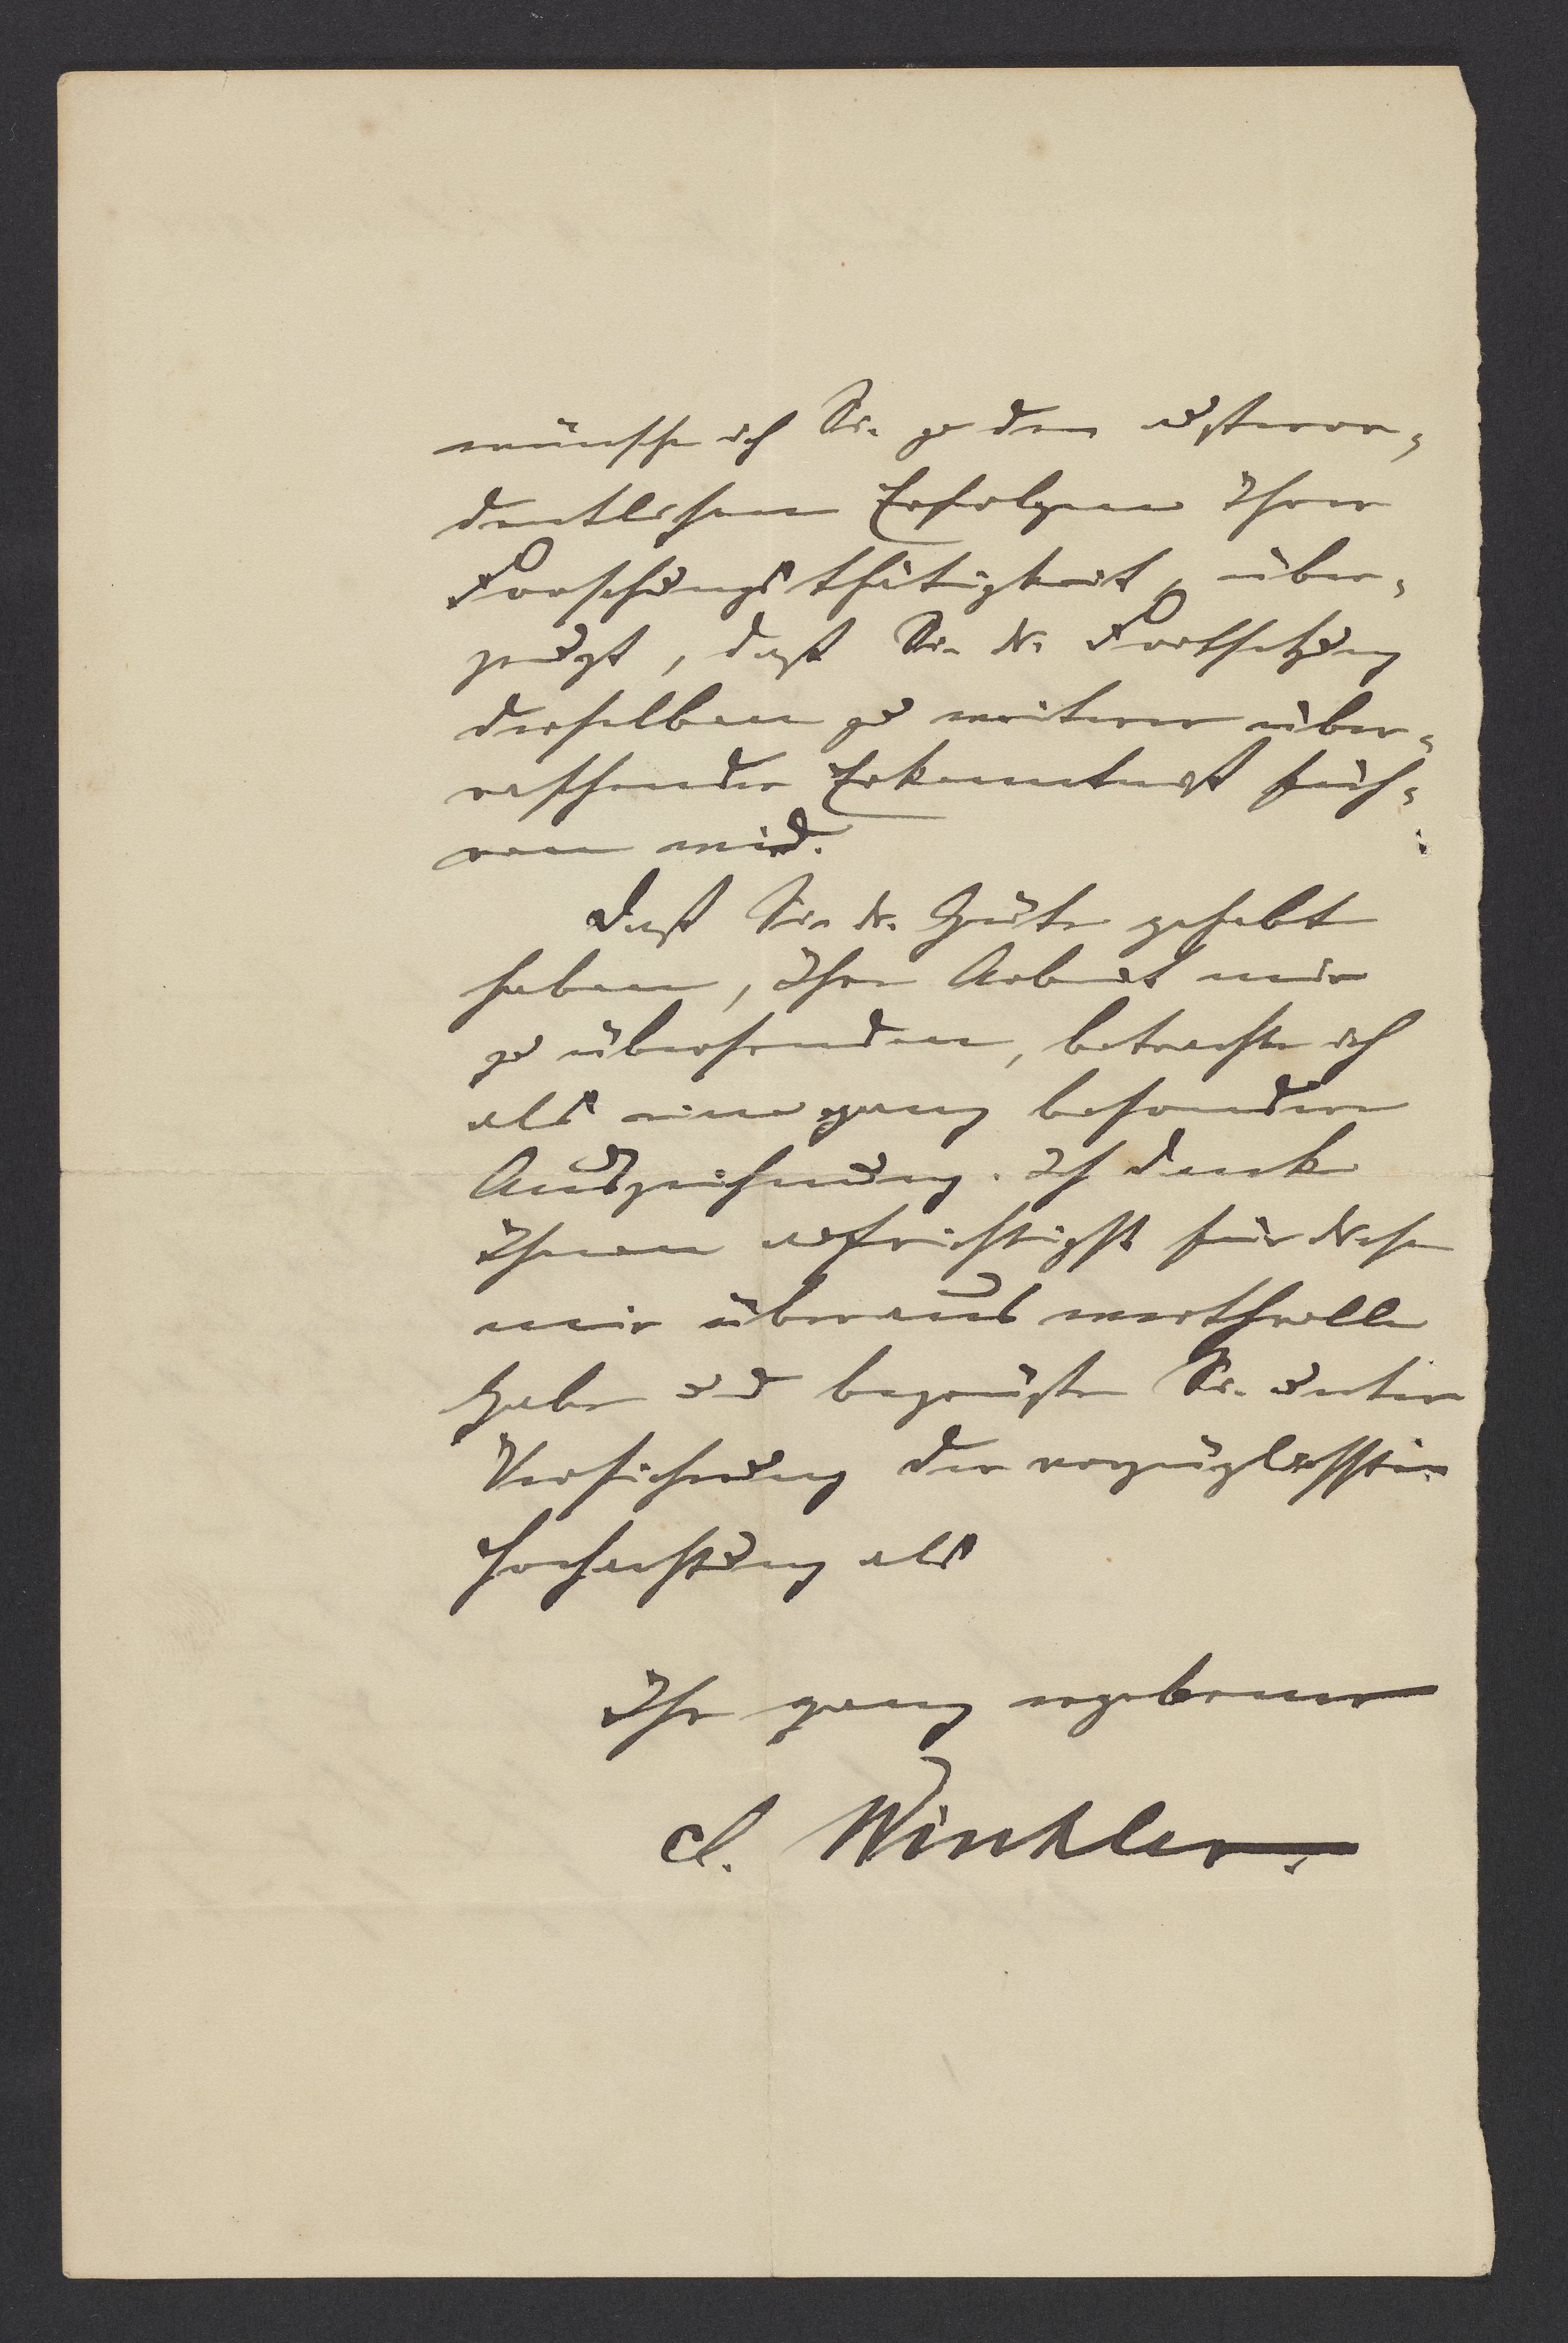 wünsche ich Sie zu den ausseror-
dentlichen Erfolgen Ihrer
Forschungsthätigkeit, über-
zeugt, dass Sie die Fortsetzung
derselben zu weiterer über-
raschender Erkenntniss füh-
ren wird.
Dass Sie die Güte gehabt
haben, Ihre Arbeit mir
zu übersenden, betrachte ich
als eine ganz besondere
Auszeichnung. Ich danke
Ihnen aufrichtigst für diese
mir überaus werthvolle
Gabe und begrüsse Sie unter
Versicherung der vorzüglichsten
Hochachtung als
Ihr ganz ergebener
Cl. Winkler.